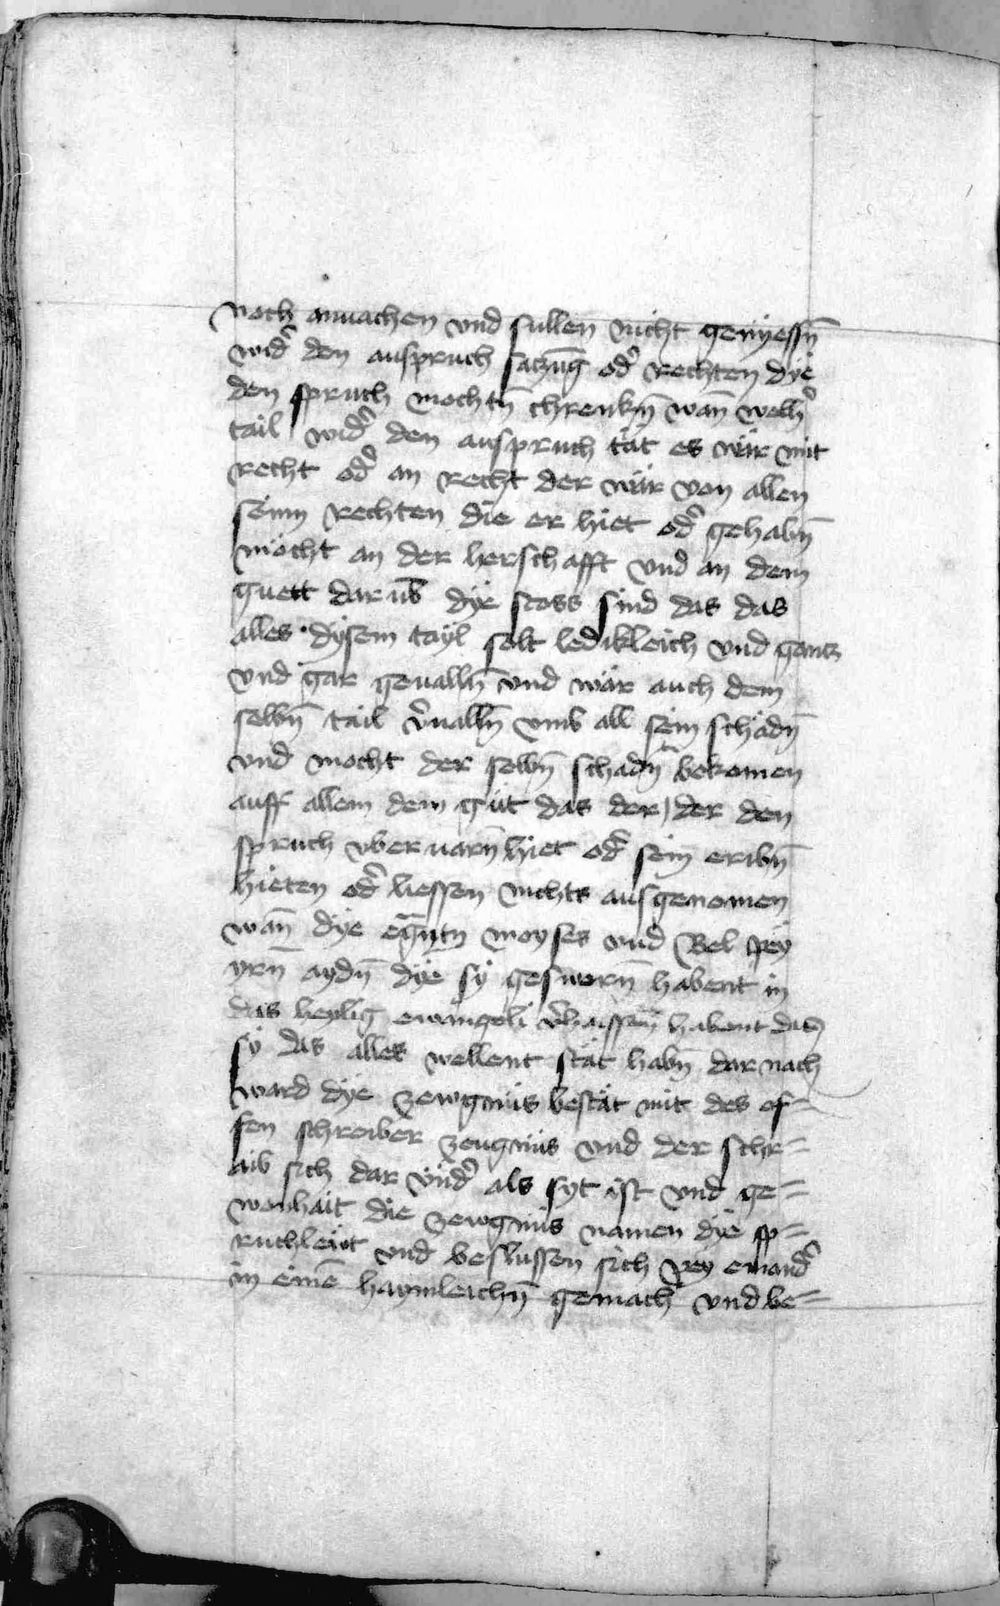 noch anuachen vnd sullen nicht genyessn̄
wid̾ den ausspruch saczūg od̾ rechten dye
den spruch mochtn̄ chrenkn̄ wan̄ welh̾
tail wid̾ den ausspruch tät es wär mit
recht od̾ an recht der wär von allen
seinn rechten die er hiet od̾ gehabn̄
möcht an der herschafft vnd an dem
guett darūb dye stoss sind das das
alles dysem tayl solt ledikleich vnd gantz
vnd gar geualln̄ vnd wär auch dem
selbn̄ tail v̾ualln̄ vmb all sein schädn̄
vnd mocht der selbn̄ schadn̄ bekomen
auff allem dem güt das der der den
spruch vberuarn̄ hiet od̾ sein eribn̄
hieten od̾ liessen nichts ausgenomen
wan̄ dye egn̄tn̄ moyses vnd Bel pey
yrn̄ aydn̄ dye sy gesworn̄ habent in
das heylig ewangeli v̾haissen habent das
sy das alles wellent stät habn̄ dar nach
ward dye zewgnüs bestät mit des of=
fen schreiber zeugnüs vnd der schr=
aib sich dar vnd̾ als syt ist vnd ge=
wonhait die zewgnüs namen dye sp=
ruchleüt vnd beslussen sich pey einand̾
in einē haymleichn̄ gemach vnd be=